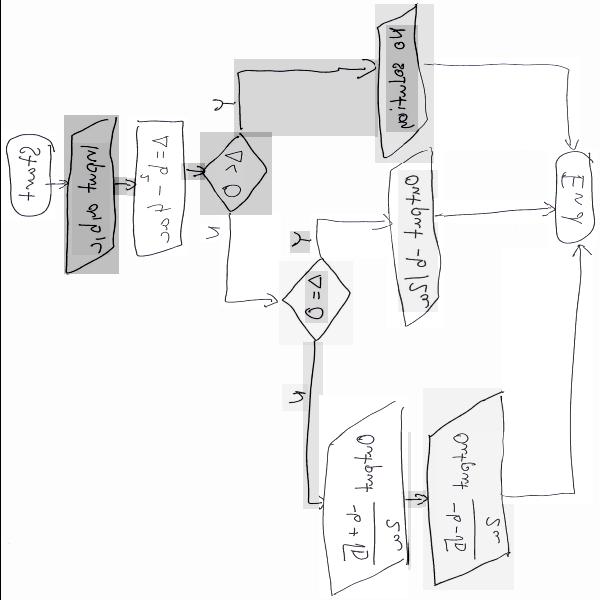 Start
Input a,b,c
Δ=b²-4ac
Δ<0
Y
N
No solution
Δ=0
Y
N
Output -b/2a
Output -b+√Δ
2a
Output -b-√Δ
2a
End